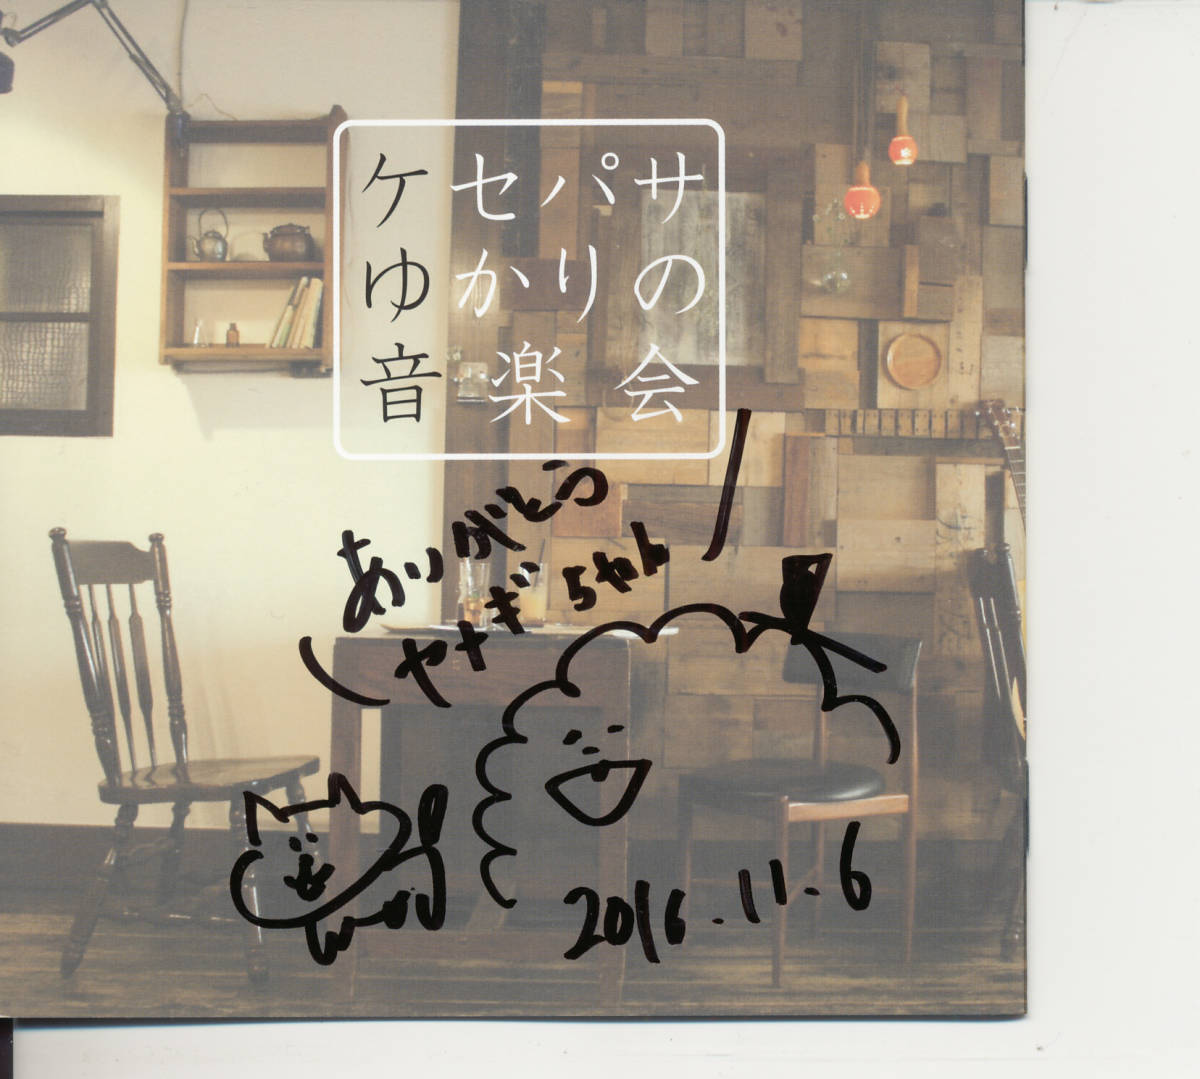 ケセパサ
ゆかりの
音楽会
ありがとう
ヤナギちゃん
2016.11.6